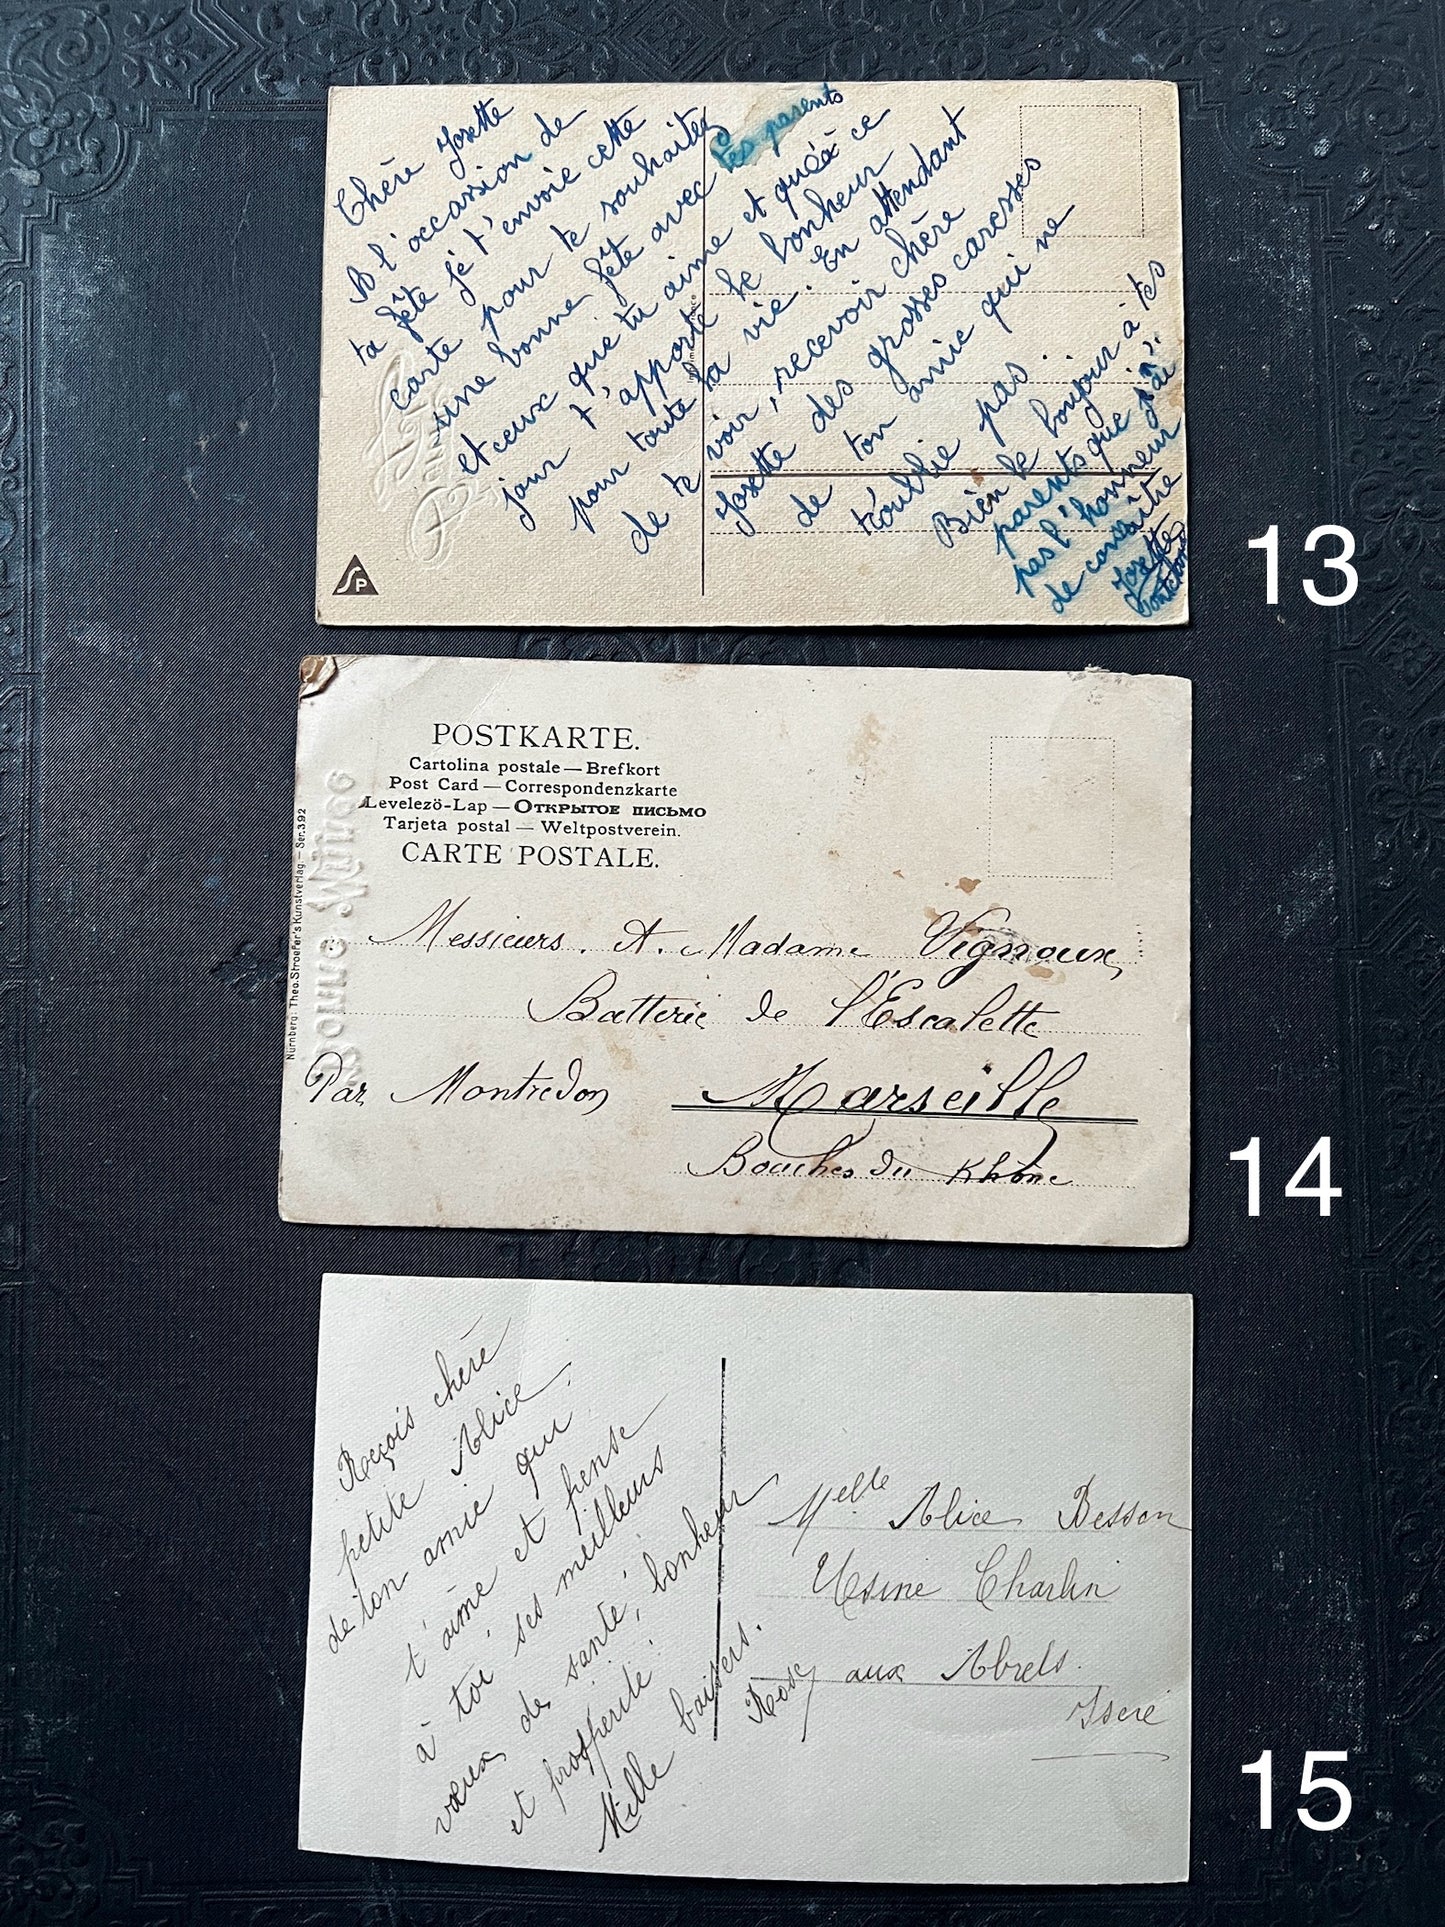 Chère Josette
A l'occasion de
ta fête je t'envoie cette
carte pour te souhaiter
une bonne fête avec tes parents
et ceux que tu aime et qu'à ce
jour t'apporte le bonheur
pour toute ta vie. En attendant
de te voir, recevoir chère
Josette des grosses caresses
de ton amie qui ne
t'oublie pas
Bien le bonjour à tes
parents que je n'ai
pas l'honneur
de connaître
Josette
SP
13
POSTKARTE.
Cartolina postale — Brefkort
Post Card — Correspondenzkarte
Levelezö-Lap — Открытое письмо
Tarjeta postal — Weltpostverein.
CARTE POSTALE.
Nürnberg: Theo. Stroefer's Kunstverlag. — Ser. 392
Bonne Année
Messieurs. et. Madame Vignoux
Batterie de l'Escalette
Par Montredon Marseille
Bouches du Rhône
14
Reçois chère
petite Alice,
de ton amie qui
t'aime et pense
à toi ses meilleurs
vœux de santé, bonheur
et prospérité.
Mille baisers.
Rose
Melle Alice Besson
Usine Charlin
aux Abrets.
Isère
15